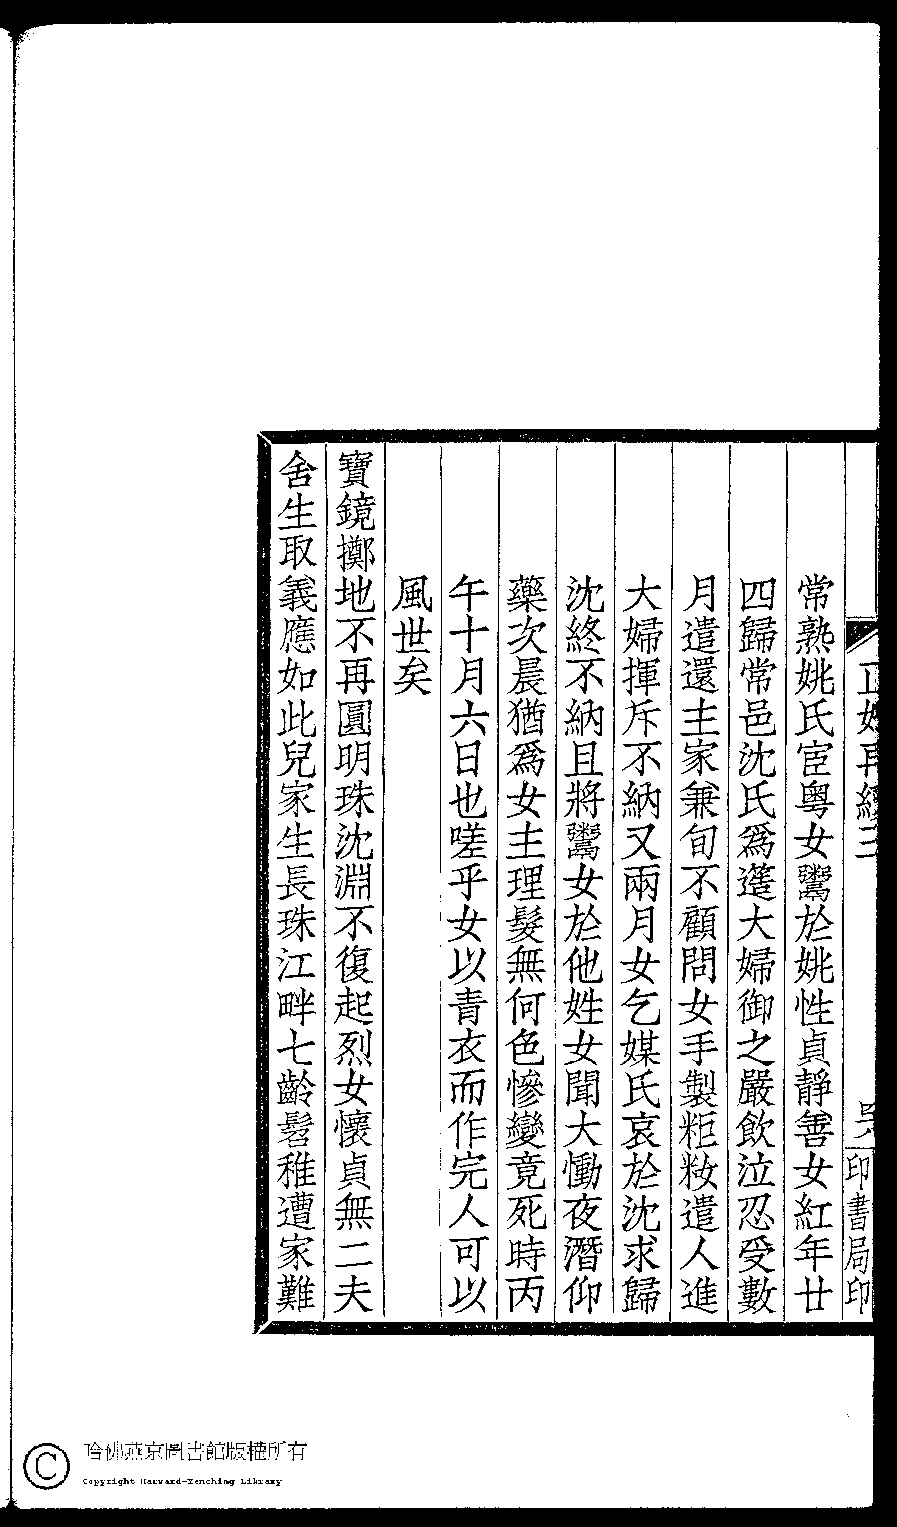 常熟姚氏宦粵女鬻於姚性貞靜善女紅年廿
四歸常邑沈氏爲簉大婦御之嚴飲泣忍受數
月遣還主家兼旬不顧問女手製粔籹遣人進
大婦揮斥不納又兩月女乞媒氏哀於沈求歸
沈終不納且將鬻女於他姓女聞大慟夜潛仰
藥次晨猶爲女主理髮無何色慘變竟死時丙
午十月六日也嗟乎女以青衣而作完人可以
風世矣
寶鏡擲地不再圓明珠沈淵不復起烈女懷貞無二夫
舍生取義應如此兒家生長珠江畔七齡髫稚遭家難
印書局印
哈佛燕京圖書館版權所有
Copyright Harvard-Yenching Library